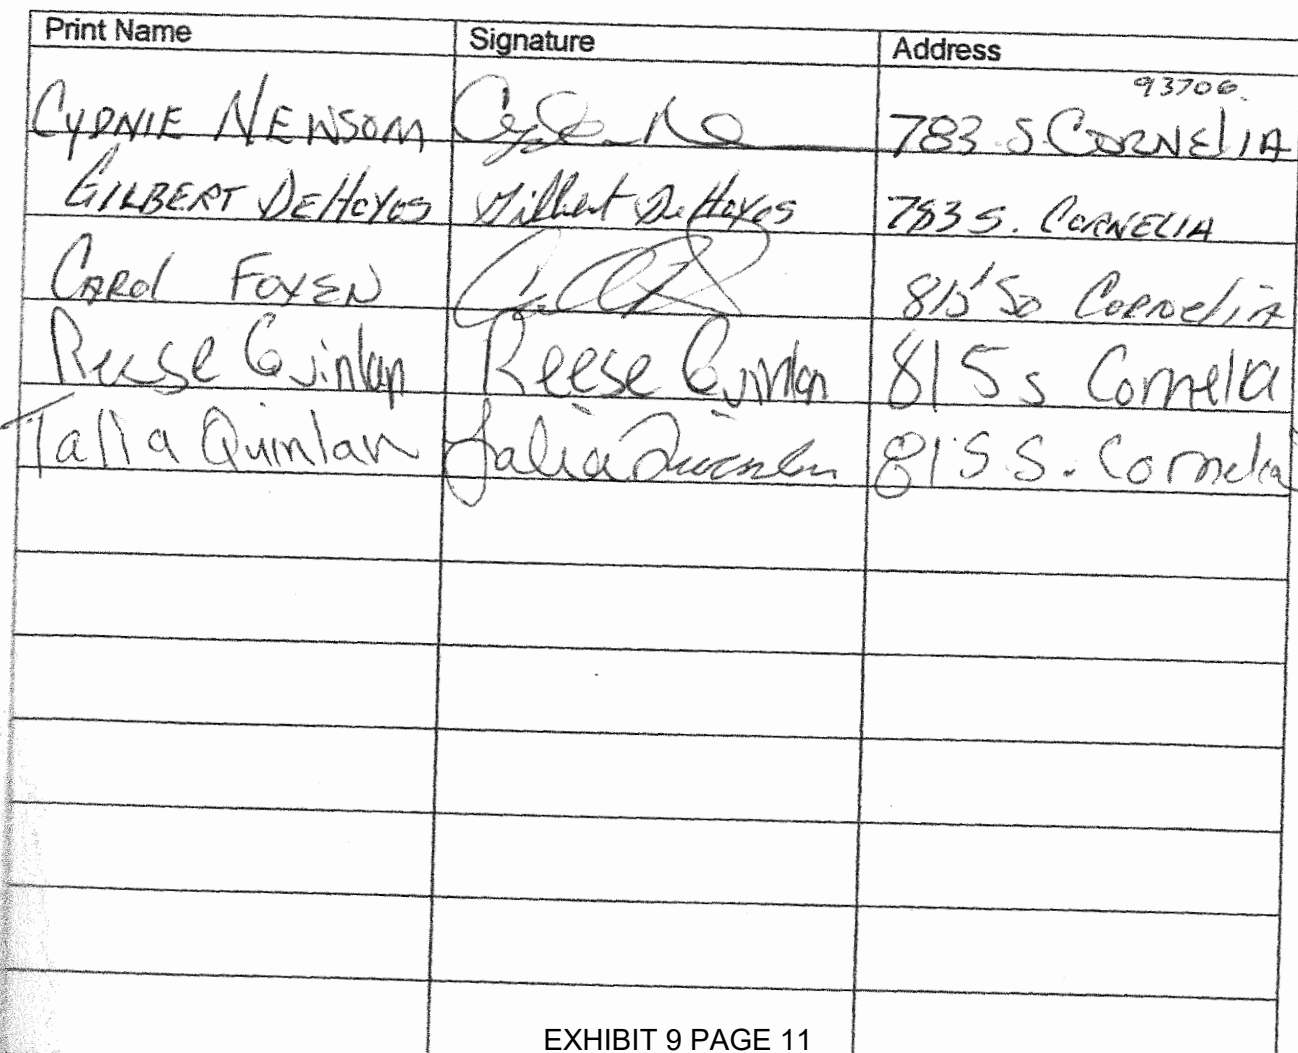 Print Name Signature Address
93706
CYDNIE NEWSOM 783 S CORNELIA
GILBERT DEHOYOS Gilbert DeHoyos 783 S. CORNELIA
CAROL FOXEN 815 So CORNELIA
Reese Quinlan Reese Quinlan 815 s Cornelia
Talia Quinlan Talia Quinlan 815 S. Cornelia
EXHIBIT 9 PAGE 11